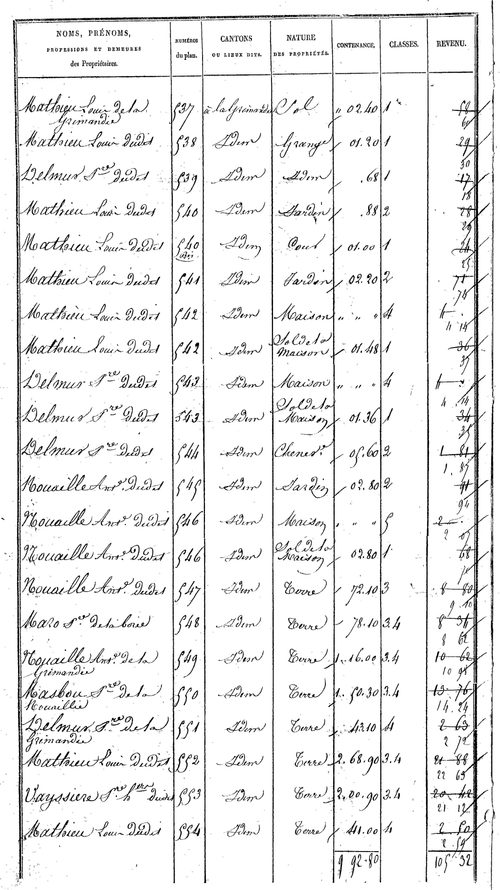 NOMS, PRÉNOMS, PROFESSIONS ET DEMEURES des Propriétaires. NUMÉROS du plan. CANTONS OU LIEUX DITS. NATURE DES PROPRIÉTÉS. CONTENANCE. CLASSES. REVENU.
Mathieu Louis de la Grimandie 537 à la Grimandie Sol " 02.40 1 59
61
Mathieu Louis dudit 538 Idem Grange 01.20 1 29
30
Delmur Pre dudit 539 Idem Idem .68 1 17
18
Mathieu Louis dudit 540 Idem Jardin .88 2 28
29
Mathieu Louis dudit 540 Idem Cour 01.00 1 24
25
Mathieu Louis dudit 541 Idem Jardin 02.20 2 71
74
Mathieu Louis dudit 542 Idem Maison " " " 4 4 .
4 14
Mathieu Louis dudit 542 Idem Sol de la Maison 01.48 1 36
37
Delmur Pre dudit 543 Idem Maison " " " 4 4
4 14
Delmur Pre dudit 543 Idem Sol de la Maison 01.36 1 34
35
Delmur Pre dudit 544 Idem Chenevr 05.60 2 1 81
1.87
Nouaille Ane dudit 545 Idem Jardin 02.80 2 91
94
Nouaille Ane dudit 546 Idem Maison " " " 5 2 .
2 07
Nouaille Ane dudit 546 Idem Sol de la Maison 02.80 1 68
Nouaille Ane dudit 547 Idem Terre 72.10 3 8 80
9 10
Mazo Pre de la borie 548 Idem Terre 78.10 3.4 8 36
8 62
Nouaille Ane de la Grimandie 549 Idem Terre 1.16.00 3.4 10 62
10 98
Masbou Pre de la Nouaillie 550 Idem Terre 1.50.30 3.4 13 76
14.24
Delmur Pre de la Grimandie 551 Idem Terre 43.10 4 2 63
2 72
Mathieu Louis dudit 552 Idem Terre 2.68.90 3.4 21 88
22 65
Vayssiere Pre hers dudit 553 Idem Terre 2.00.90 3.4 20 42
21 12
Mathieu Louis dudit 554 Idem Terre 41.00 4 2 50
2 59
9 92-80 105 32